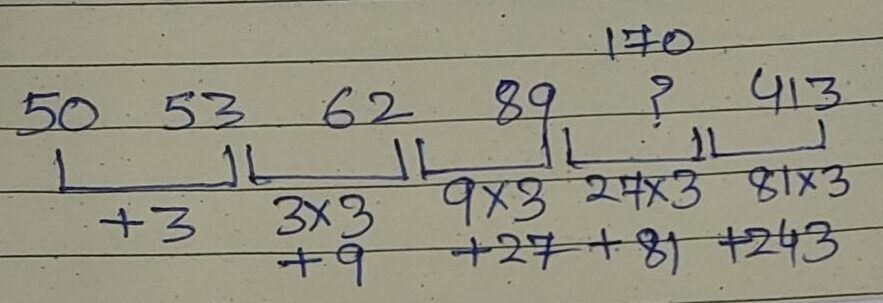 170
50 53 62 89 ? 413
+3 3×3 9×3 27×3 81×3
+9 +27 +81 +243